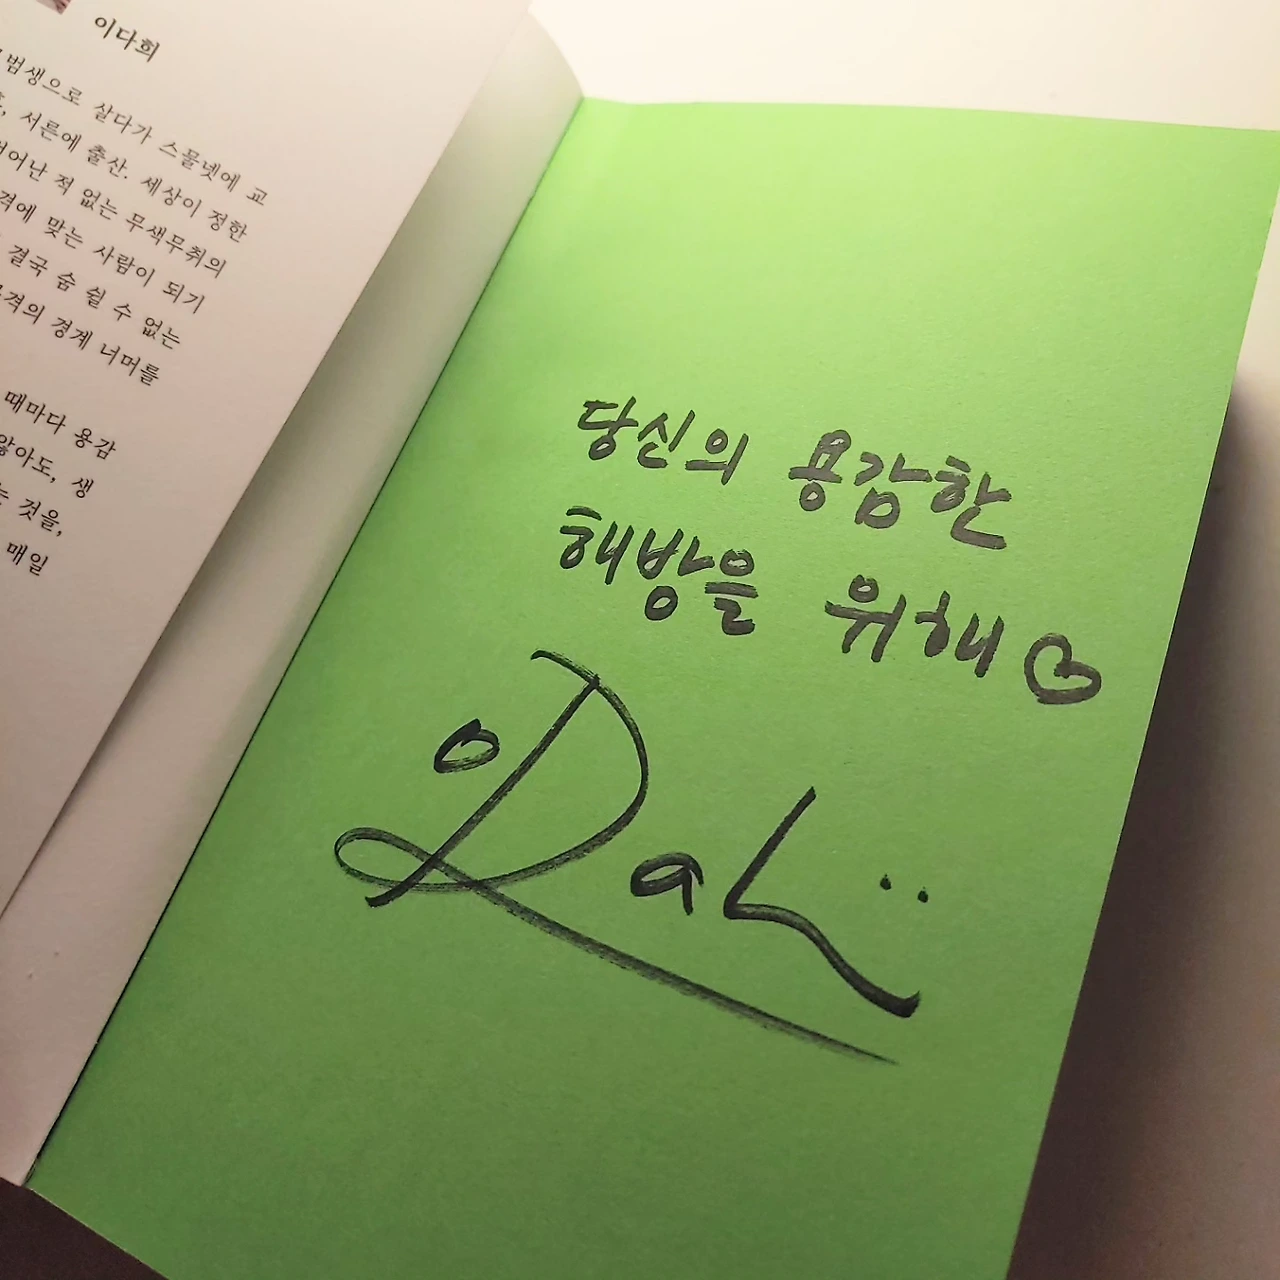 이다희
범생으로 살다가 스물넷에 교
서른에 출산. 세상이 정한
어난 적 없는 무색무취의
격에 맞는 사람이 되기
결국 숨 쉴 수 없는
격의 경계 너머를
때마다 용감
않아도, 생
는 것을,
매일
당신의 용감한
해방을 위해♡
이Dahi